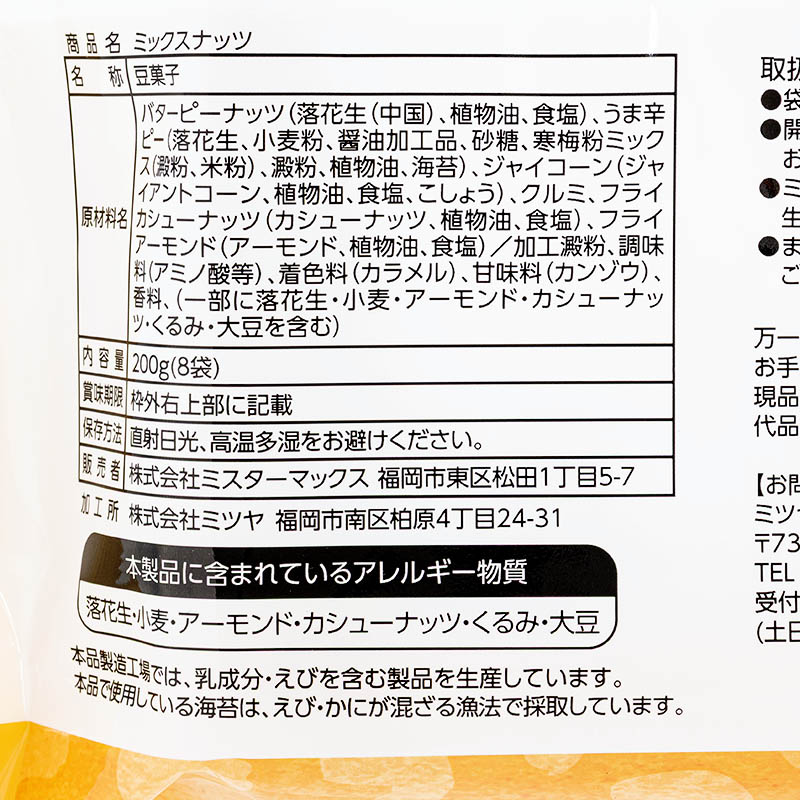 商品名 ミックスナッツ
名称 豆菓子
原材料名
バターピーナッツ(落花生(中国)、植物油、食塩)、うま辛
ピー(落花生、小麦粉、醤油加工品、砂糖、寒梅粉ミック
ス(澱粉、米粉)、澱粉、植物油、海苔)、ジャイコーン(ジャ
イアントコーン、植物油、食塩、こしょう)、クルミ、フライ
カシューナッツ(カシューナッツ、植物油、食塩)、フライ
アーモンド(アーモンド、植物油、食塩)/加工澱粉、調味
料(アミノ酸等)、着色料(カラメル)、甘味料(カンゾウ)、
香料、(一部に落花生・小麦・アーモンド・カシューナッ
ツ・くるみ・大豆を含む)
内容量 200g(8袋)
賞味期限 枠外右上部に記載
保存方法 直射日光、高温多湿をお避けください。
販売者 株式会社ミスターマックス 福岡市東区松田1丁目5-7
加工所 株式会社ミツヤ 福岡市南区柏原4丁目24-31
本製品に含まれているアレルギー物質
落花生・小麦・アーモンド・カシューナッツ・くるみ・大豆
本品製造工場では、乳成分・えびを含む製品を生産しています。
本品で使用している海苔は、えび・かにが混ざる漁法で採取しています。
取扱
●袋
●開
お
●ミ
生
●ま
ご
万一
お手
現品
代品
【お問
ミツ
〒73
TEL
受付
(土日